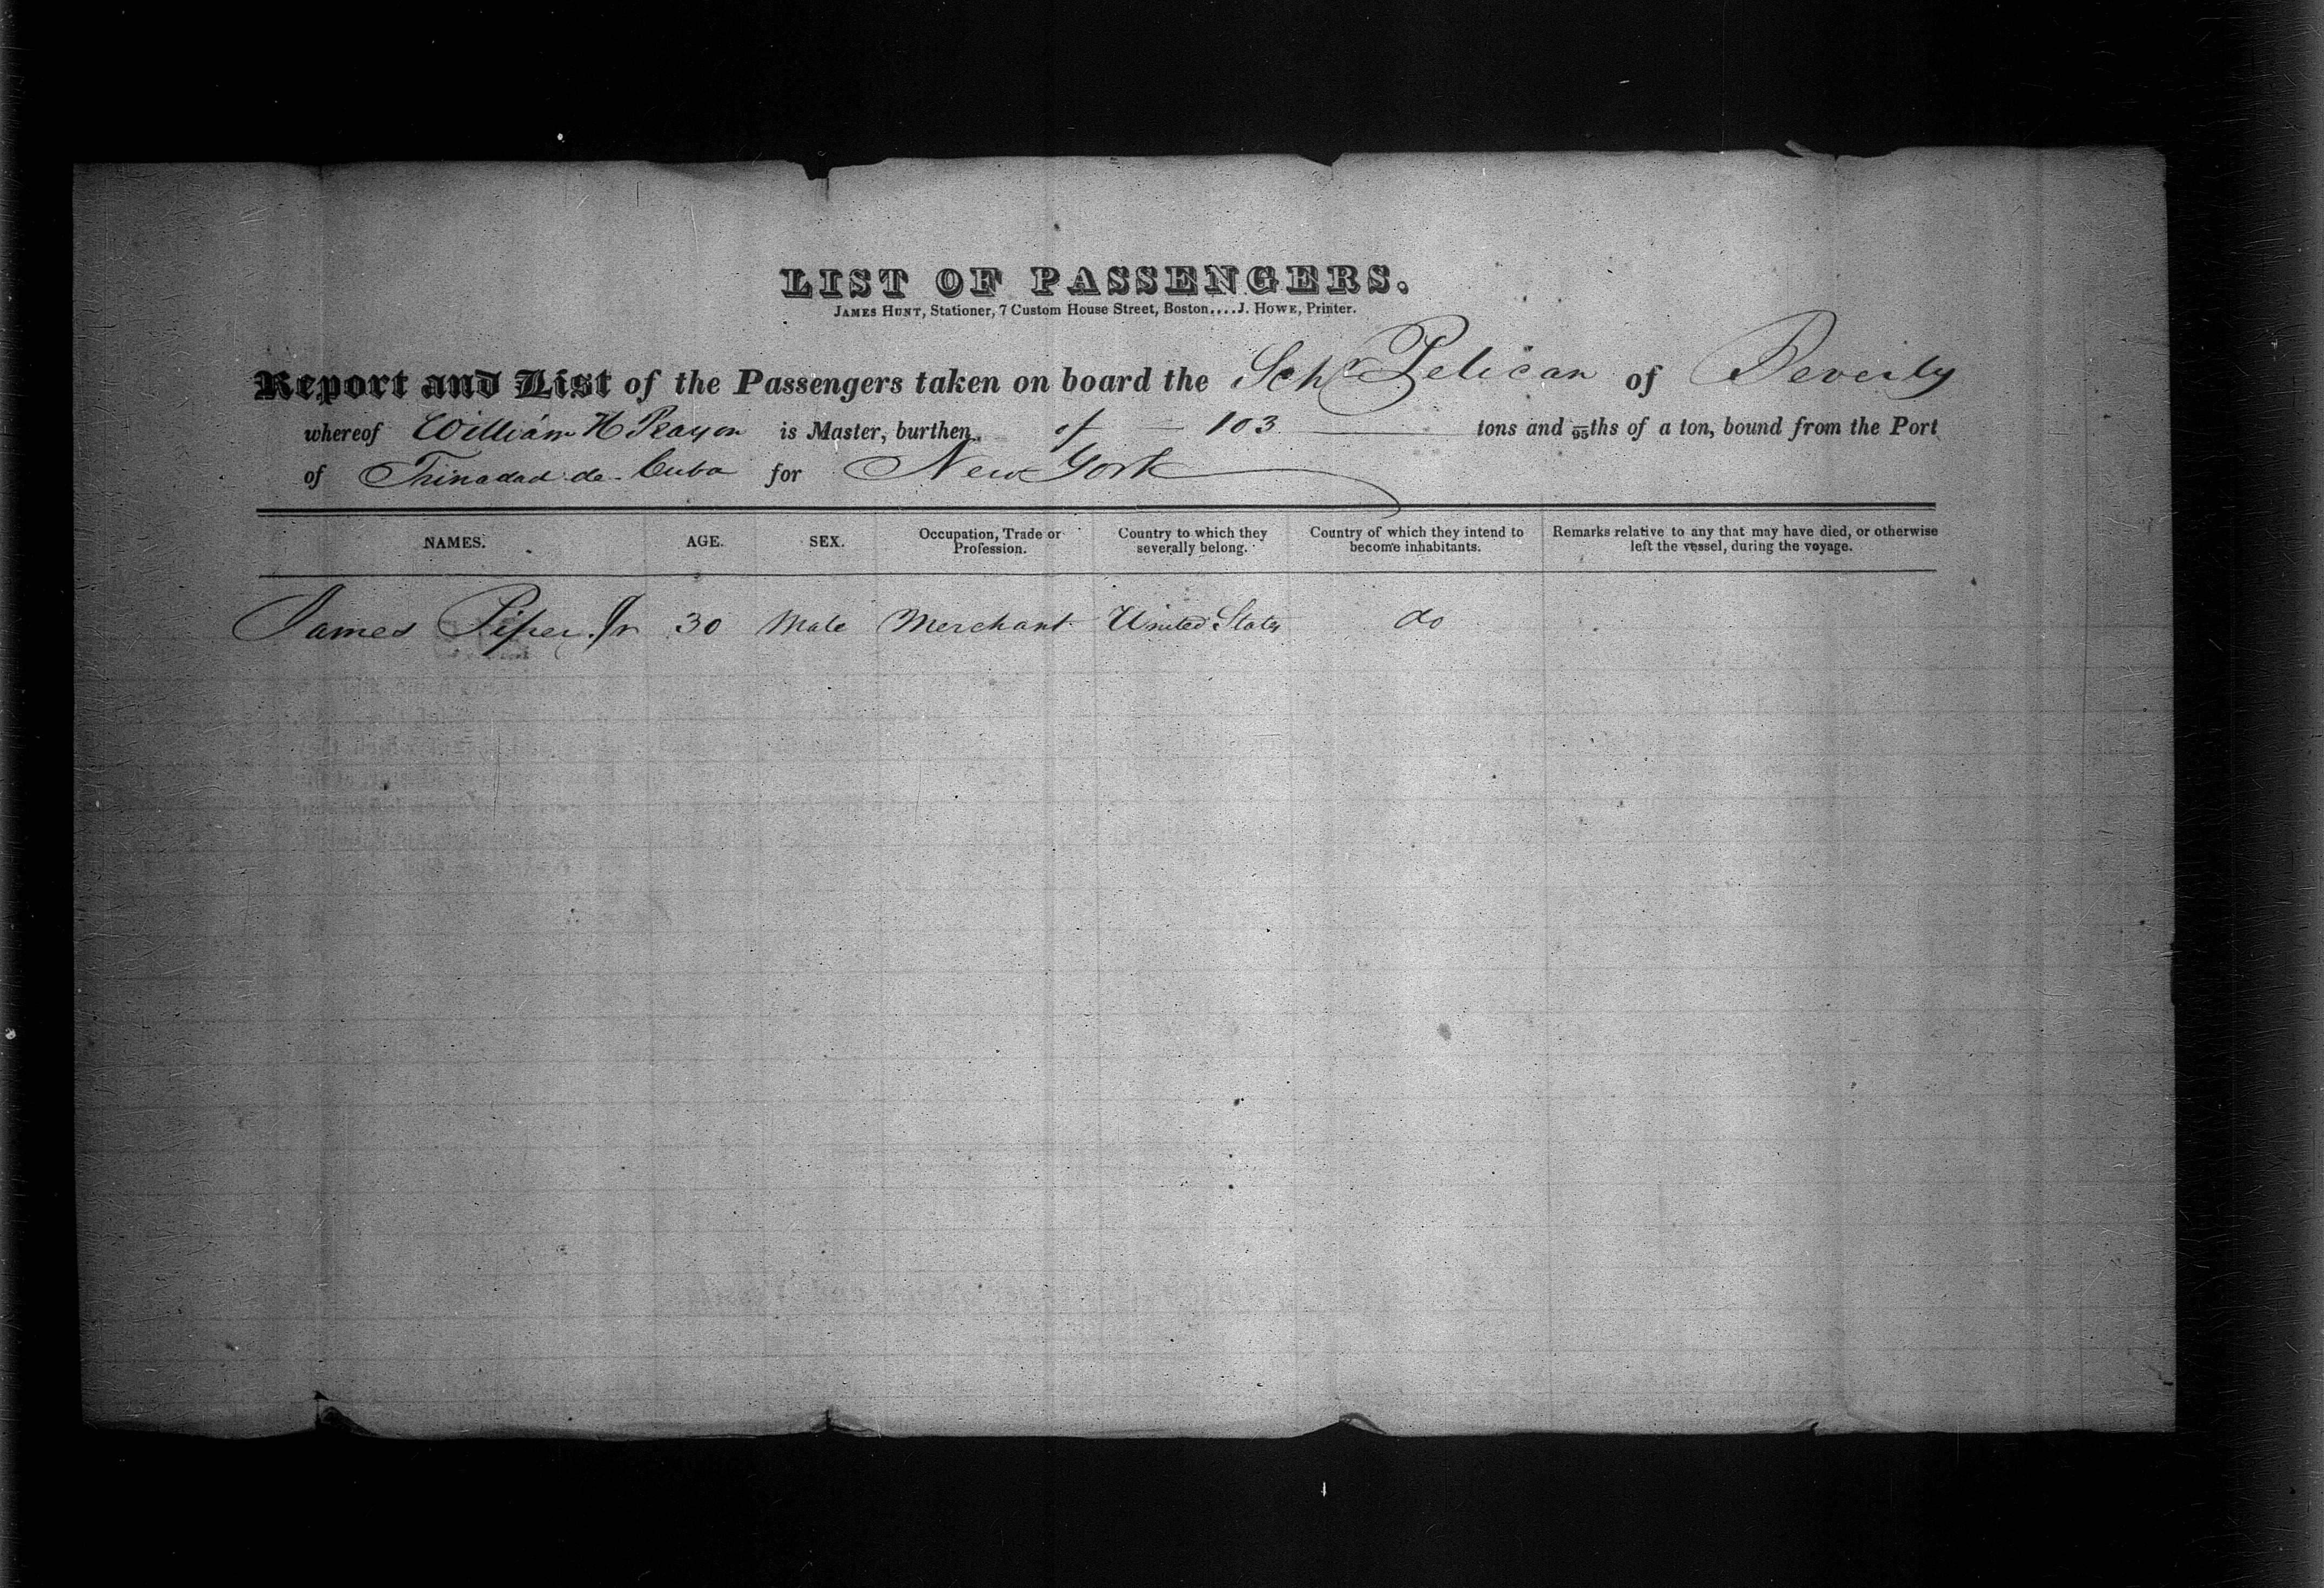 LIST OF PASSENGERS.
JAMES HUNT, Stationer, 7 Custom House Street, Boston....J. HOWE, Printer.
Report and List of the Passengers taken on board the Schr Pelican of Beverly
whereof William H is Master, burthen of 103 tons and /95ths of a ton, bound from the Port
of Trinadad de Cuba for New York
NAMES. AGE. SEX. Occupation, Trade or Profession. Country to which they severally belong. Country of which they intend to become inhabitants. Remarks relative to any that may have died, or otherwise left the vessel, during the voyage.
James Piper Jr 30 Male Merchant United States do